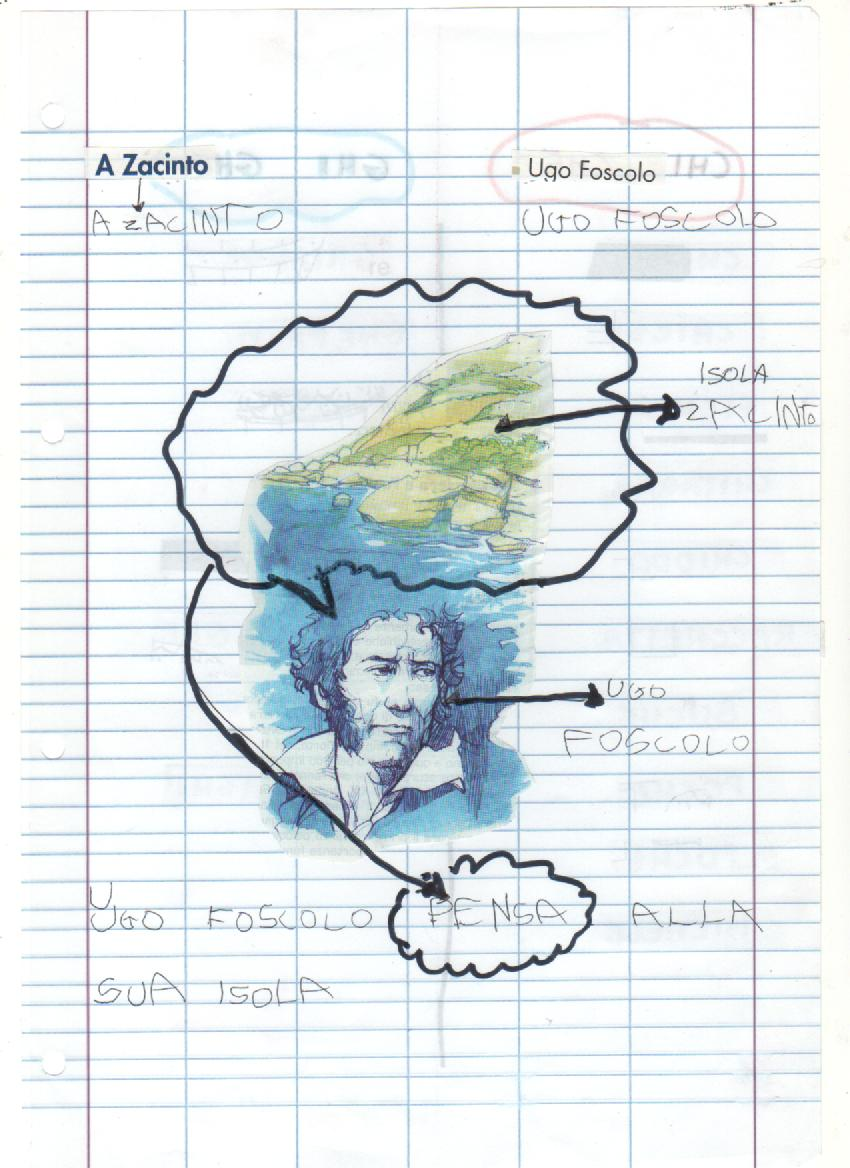 A Zacinto
Ugo Foscolo
A ZACINTO
UGO FOSCOLO
ISOLA
ZACINTO
UGO
FOSCOLO
UGO FOSCOLO PENSA ALLA
SUA ISOLA